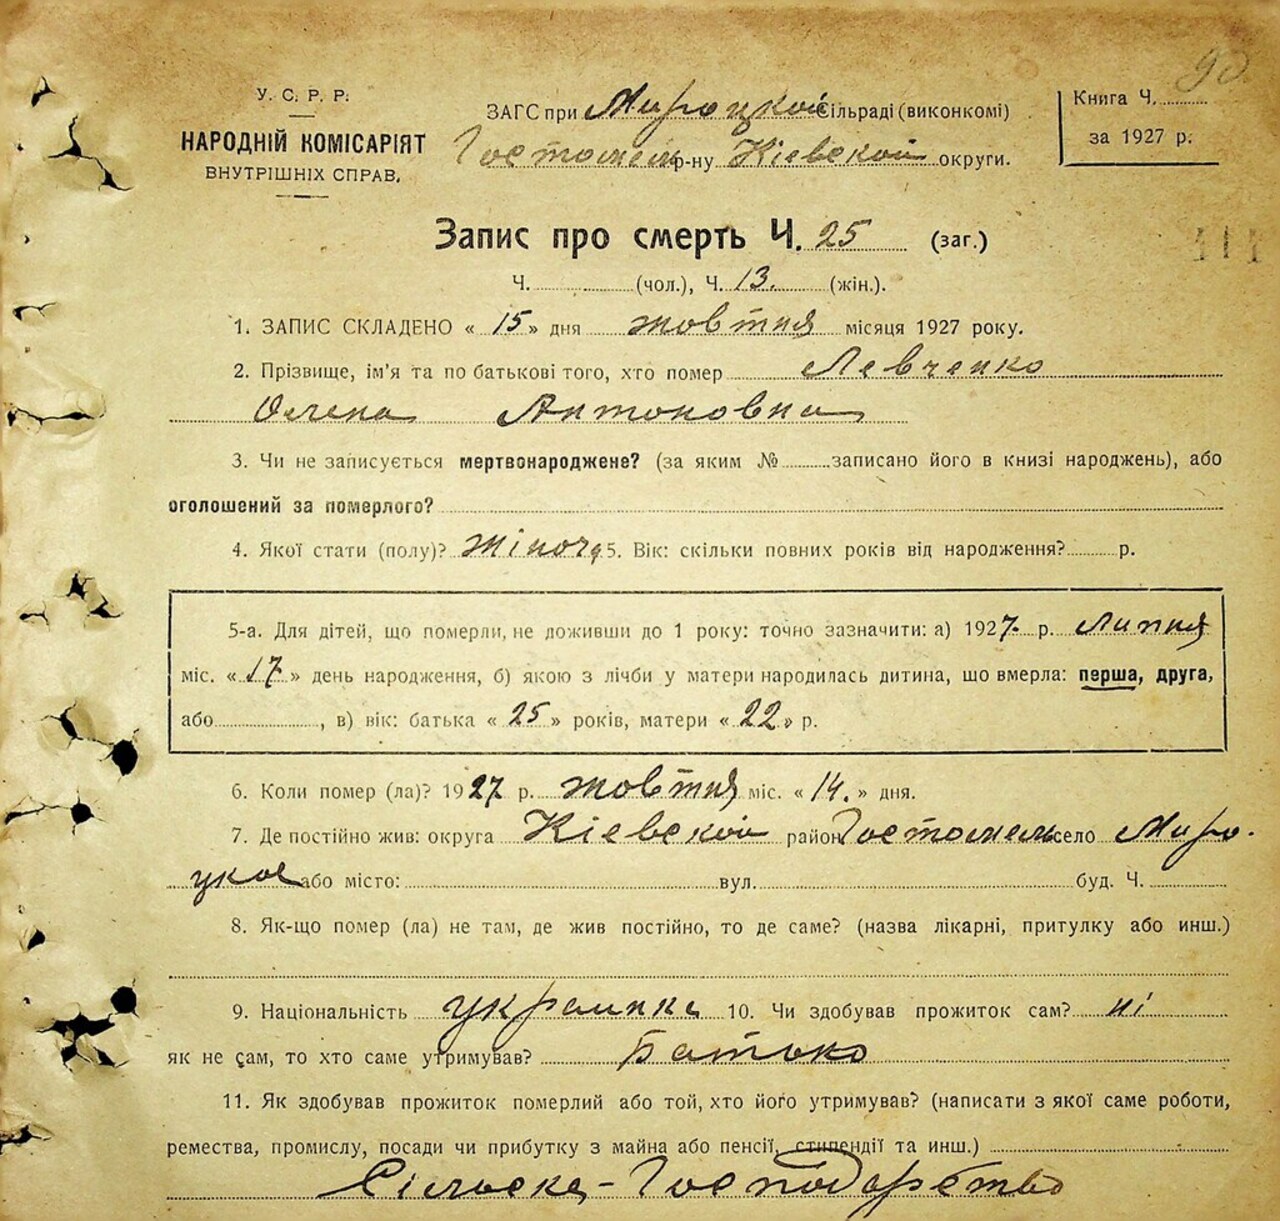 90
У. С. Р. Р.
НАРОДНІЙ КОМІСАРІЯТ
ВНУТРІШНІХ СПРАВ.
ЗАГС при Мироцкой Сільраді (виконкомі)
Гостомель р-ну Кіевской округи.
Книга Ч.
за 1927 р.
Запис про смерть Ч. 25 (заг.)
111
Ч. (чол.), Ч. 13. (жін.).
1. ЗАПИС СКЛАДЕНО « 15 » дня жовтня місяця 1927 року.
2. Прізвище, ім'я та по батькові того, хто помер Левченко
Олена Антоновна
3. Чи не записується мертвонароджене? (за яким № записано його в книзі народжень), або
оголошений за померлого?
4. Якої стати (полу)? жіноча 5. Вік: скільки повних років від народження? р.
5-а. Для дітей, що померли, не доживши до 1 року: точно зазначити: а) 1927 р. Липня
міс. « 17 » день народження, б) якою з лічби у матери народилась дитина, що вмерла: перша, друга,
або , в) вік: батька « 25 » років, матери « 22 » р.
6. Коли помер (ла)? 1927 р. жовтня міс. « 14. » дня.
7. Де постійно жив: округа Кіевской район Гостомель село Миро-
цкое або місто: вул. буд. Ч.
8. Як-що помер (ла) не там, де жив постійно, то де саме? (назва лікарні, притулку або инш.)
9. Національність украинка 10. Чи здобував прожиток сам? ні
як не сам, то хто саме утримував? Батько
11. Як здобував прожиток померлий або той, хто його утримував? (написати з якої саме роботи,
ремества, промислу, посади чи прибутку з майна або пенсії, стипендії та инш.)
Сільске-Господарство